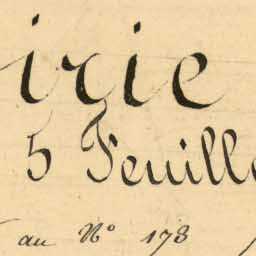 irie
5 Feuille
au N° 178